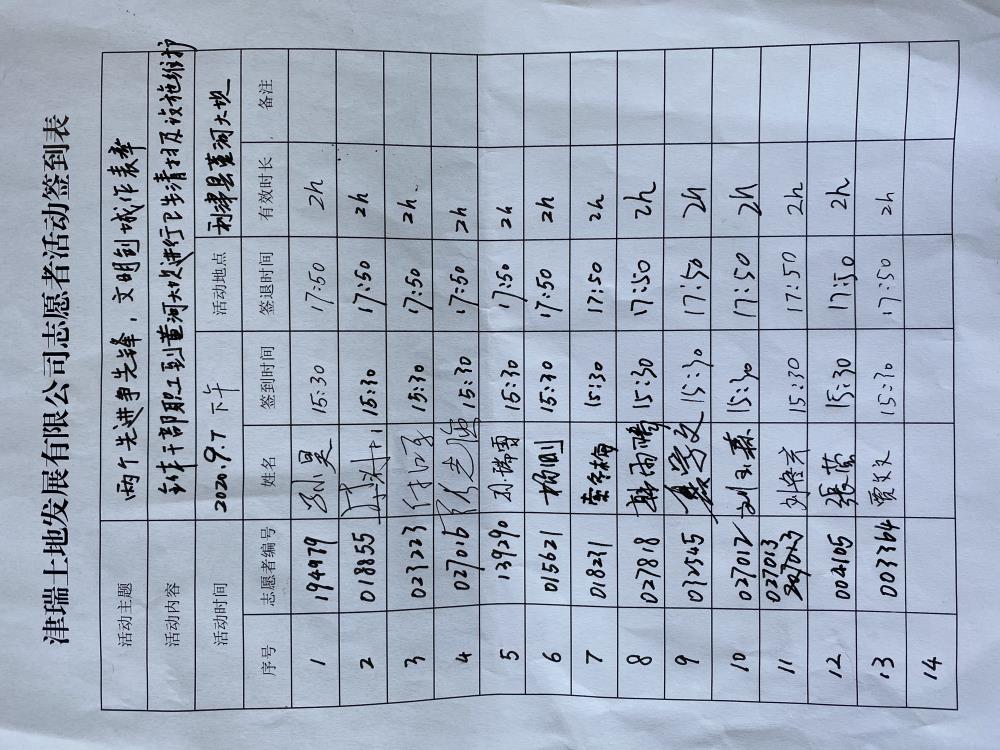 津瑞土地发展有限公司志愿者活动签到表
活动主题 两个先进争先锋，文明创城作表率
活动内容 干部职工到黄河大坝进行卫生清扫及设施维护
活动时间 2020.9.7 下午 活动地点 利津县黄河大坝
序号 志愿者编号 姓名 签到时间 签退时间 有效时长 备注
1 194979 孙昊 15:30 17:50 2h
2 018855 15:30 17:50 2h
3 023223 15:30 17:50 2h
4 027016 15:30 17:50 2h
5 139290 瑞雷 15:30 17:50 2h
6 015621 杨刚 15:30 17:50 2h
7 018231 梅 15:30 17:50 2h
8 027818 韩雨鹏 15:30 17:50 2h
9 032545 学文 15:30 17:50 2h
10 027012 刘玉森 15:30 17:50 2h
11 027013 刘 15:30 17:50 2h
12 004105 張蕾 15:30 17:50 2h
13 003364 贾文文 15:30 17:50 2h
14